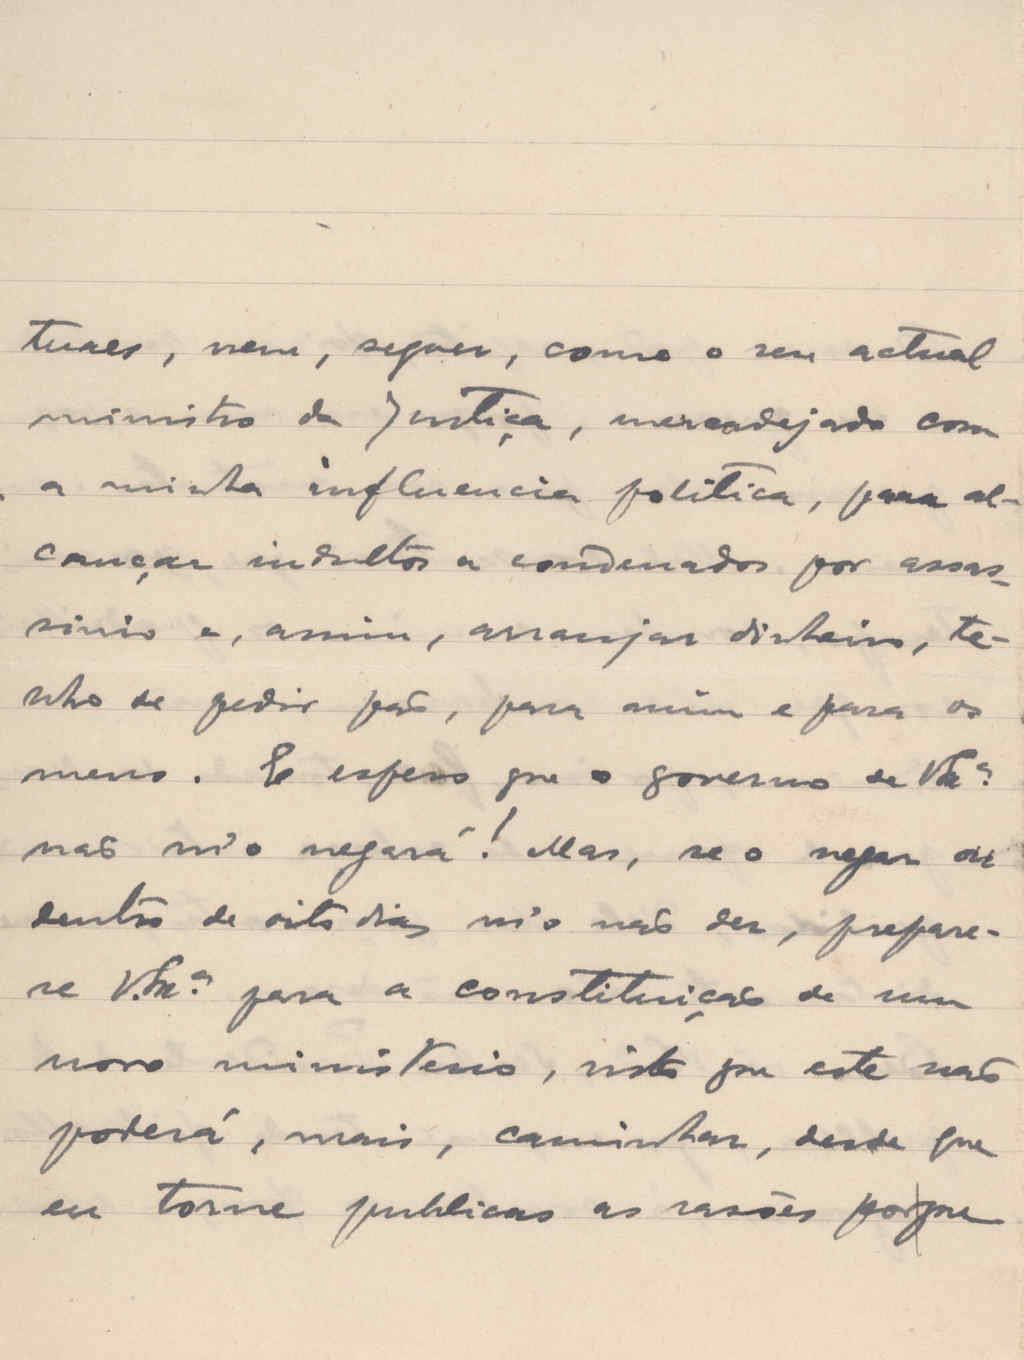 tuaes, nem, sequer, como o seu actual
ministro da Justiça, mercadejado com
a minha influencia politica, para al-
cançar indultos a condenados por assas-
sinio e, assim, arranjar dinheiro, te-
nho de pedir pão, para mim e para os
meus. E espero que o governo de V.Ex.ª
não m'o negará! Mas, se o negar ou
dentro de oito dias m'o não der, prepare-
se V.Ex.ª para a constituição de um
novo ministerio, visto que este não
poderá, mais, caminhar, desde que
eu torne publicas as rasões porque